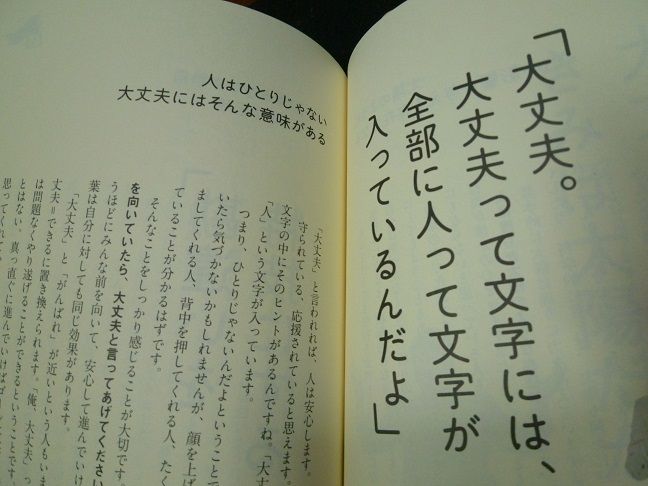 「大丈夫。
大丈夫って文字には、
全部に人って文字が
入っているんだよ」
人はひとりじゃない
大丈夫にはそんな意味がある
「大丈夫」と言われれば、人は安心します。
守られている、応援されていると思えます。
文字の中にそのヒントがあるんですね。「大丈
「人」という文字が入っています。
つまり、ひとりじゃないんだよということで
いたら気づかないかもしれませんが、顔を上げ
ましてくれる人、背中を押してくれる人、たく
ていることが分かるはずです。
そんなことをしっかり感じることが大切です。
を向いていたら、大丈夫と言ってあげてください
うほどにみんな前を向いて、安心して進んでいけ
葉は自分に対しても同じ効果があります。
「大丈夫」と「がんばれ」が近いという人もいま
丈夫＝できるに置き換えられます。「俺、大丈夫」っ
は問題なくやり遂げることができるということです。
とはない、真っ直ぐに進んでいけばゴール
思ってくれて